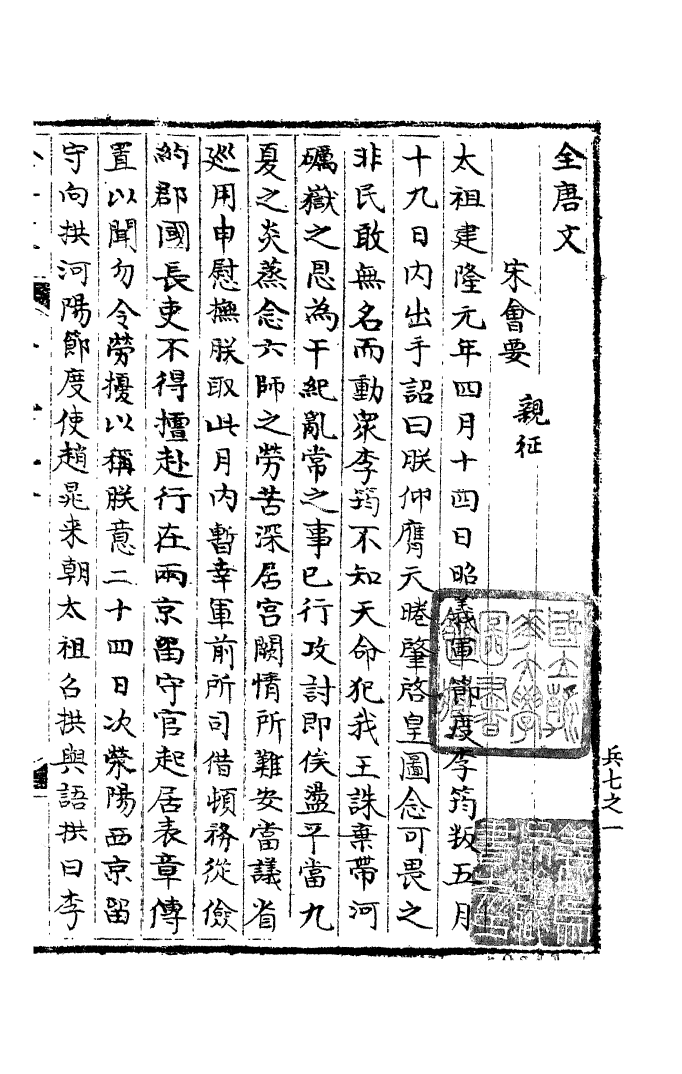 全唐文
宋會要
親征
太祖建隆元年四月十四日昭義軍節度李筠叛五月
十九日内出手詔曰朕仰膺天睠肇啓皇圖念可畏之
非民敢無名而動衆李筠不知天命犯我王誅棄帶河
礪嶽之恩為干紀亂常之事已行攻討即俟盪平當九
夏之炎蒸念六師之勞苦深居宮闕情所難安當議省
巡用申慰撫朕取此月内暫幸軍前所司借頓務從儉
約郡國長吏不得擅赴行在兩京留守官起居表章傳
置以聞勿令勞擾以稱朕意二十四日次滎陽西京留
守向拱河陽節度使趙晁来朝太祖召拱與語拱曰李
兵七之一
國立
大學
圖書